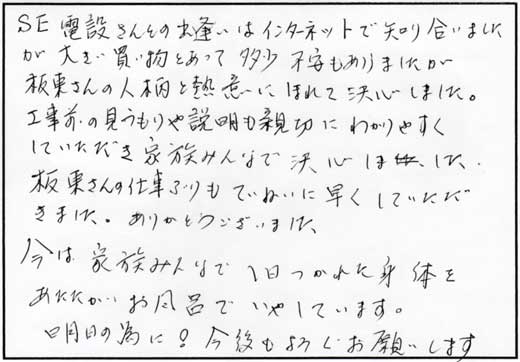 SE電設さんとの出逢いはインターネットで知り合いました
が大きい買い物とあって多少不安もありましたが
板東さんの人柄と熱意にほれて決心しました。
工事前の見うもりや説明も親切にわかりやすく
していただき家族みんなで決心しました.
板東さんの仕事ぶりもていねいに早くしていただ
きました。ありがとうございました
今は家族みんなで1日つかれた身体を
あたたかいお風呂でいやしています。
明日の為に!今後もよろしくお願いします